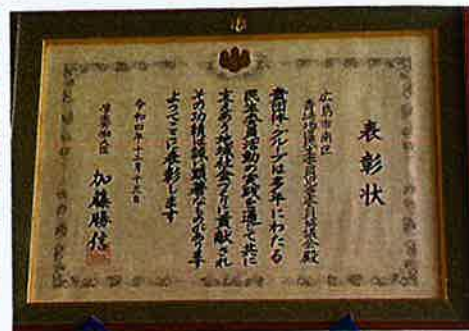 表彰状
広島市南区
貴団体・グループは多年にわたる
民生委員活動の実践を通して共に
支えあう地域社会づくりに貢献され
その功績は誠に顕著なものがあります
よってここに表彰します
令和四年十二月十三日
厚生労働大臣 加藤勝信